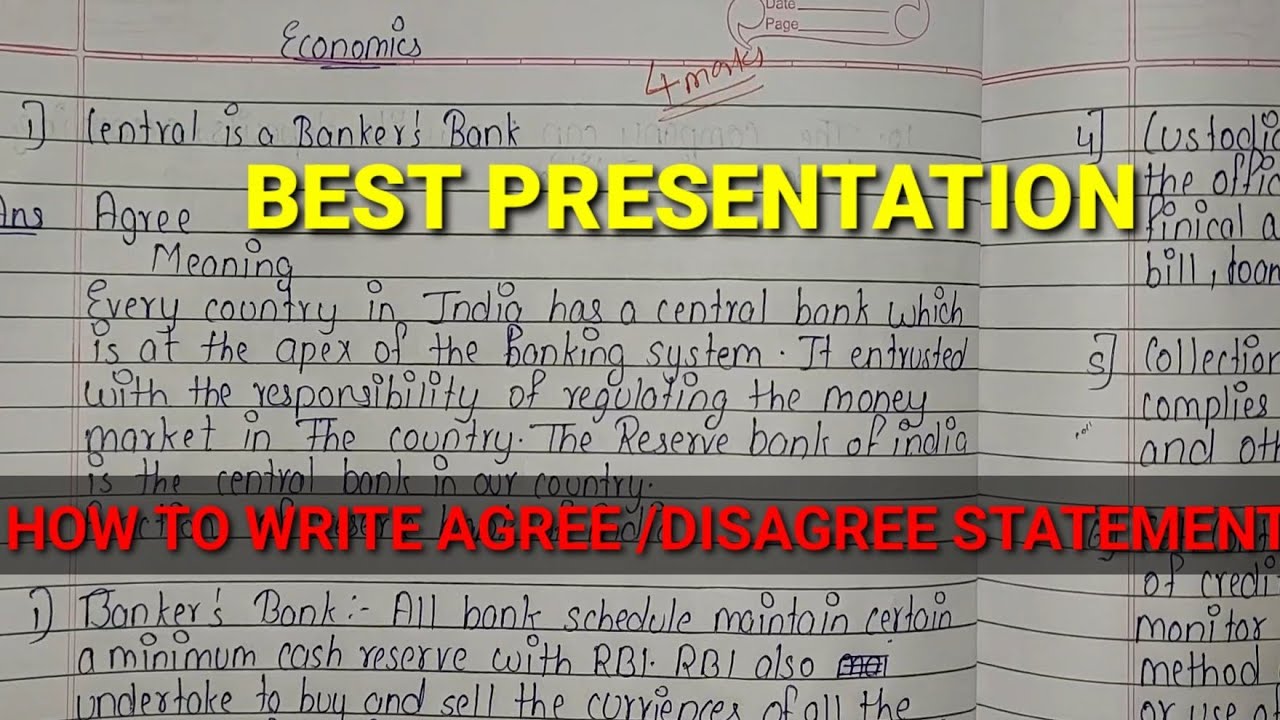 Date
Page
Economics
4 marks
1] Central is a Banker's Bank
BEST PRESENTATION
Ans Agree
Meaning
Every country in India has a central bank which
is at the apex of the Banking system. It entrusted
with the responsibility of regulating the money
market in The country. The Reserve bank of india
is the central bank in our country.
HOW TO WRITE AGREE /DISAGREE STATEMENT
1] Banker's Bank:- All bank schedule maintain certain
a minimum cash reserve with RBI. RBI also
undertake to buy and sell the curriences of all the
4] Custodi
the offic
finical a
bill, toan
5] Collection
complies
and oth
of credi
monitor
method
or use of